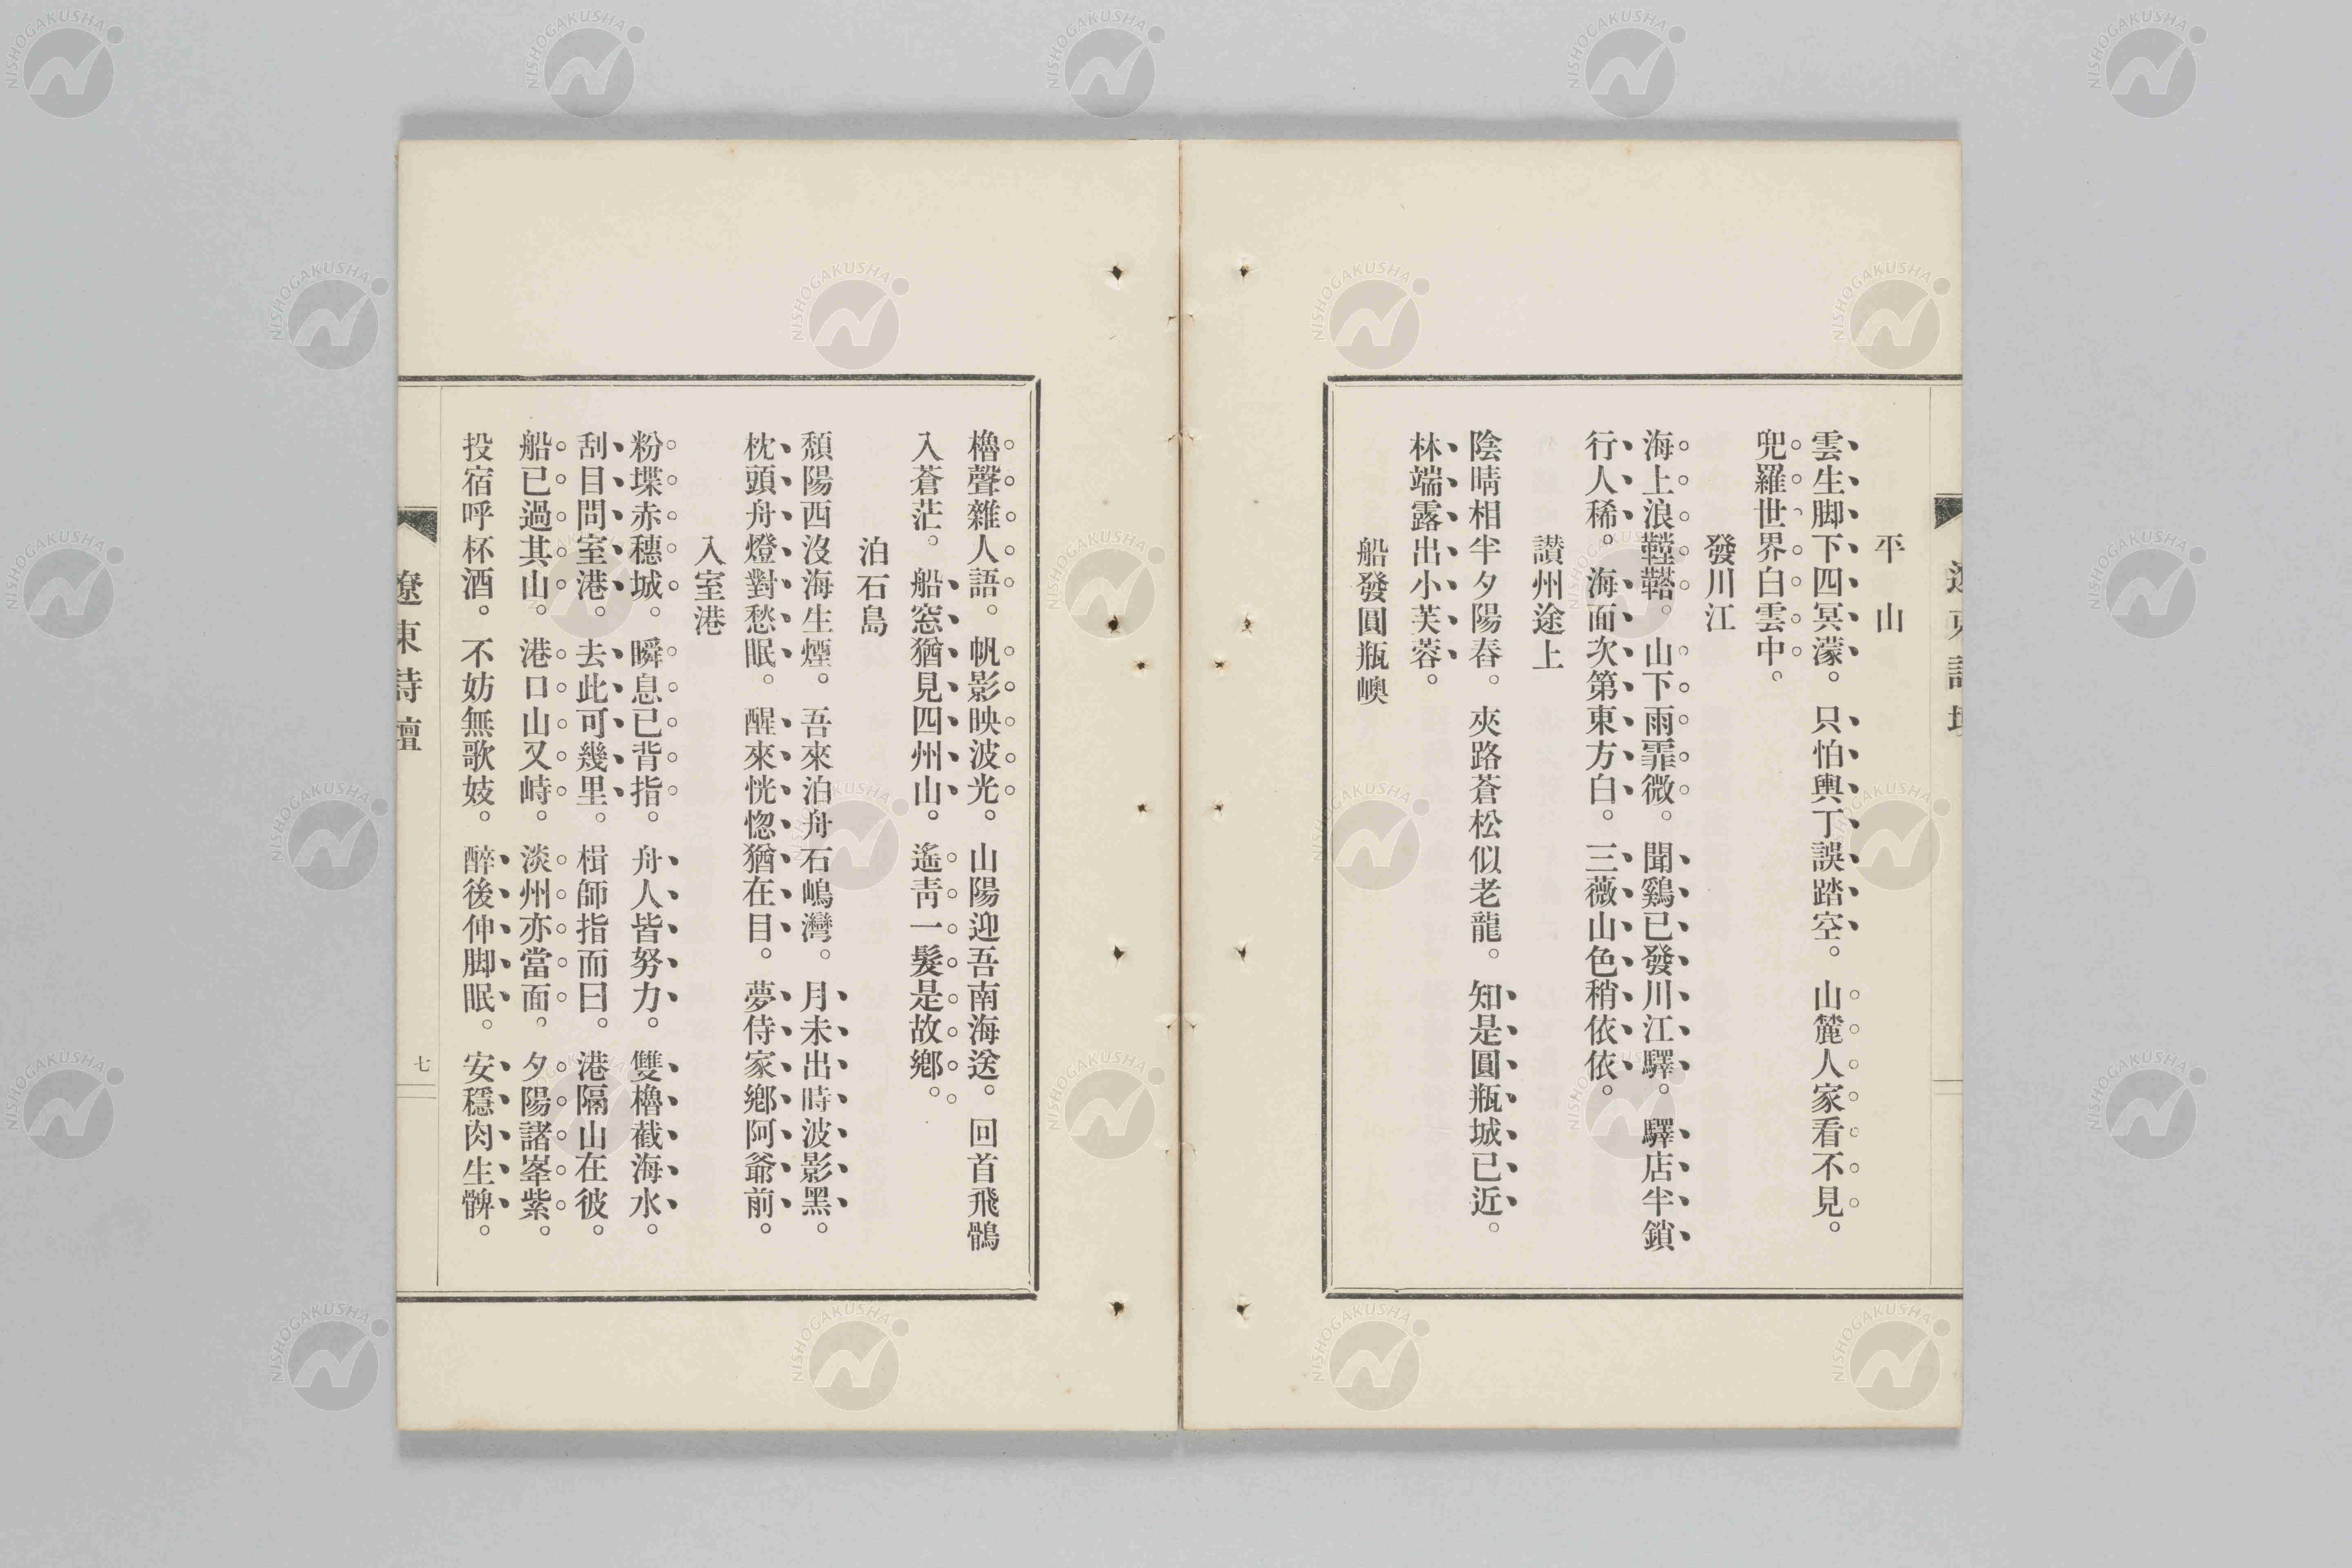 平山
雲生脚下四冥濛。只怕輿丁誤踏空。山麓人家看不見。
兜羅世界白雲中。
發川江
海上浪鞺鞳。山下雨霏微。聞鷄已發川江驛。驛店半鎖
行人稀。海面次第東方白。三薇山色稍依依。
讃州途上
陰晴相半夕陽舂。夾路蒼松似老龍。知是圓瓶城已近。
林端露出小芙蓉。
船發圓瓶嶴
櫓聲雜人語。帆影映波光。山陽迎吾南海送。回首飛鷁
入蒼茫。船窓猶見四州山。遙靑一髮是故鄕。
泊石島
頽陽西沒海生煙。吾來泊舟石嶋灣。月未出時波影黑。
枕頭舟燈對愁眠。醒來恍惚猶在目。夢侍家鄕阿爺前。
入室港
粉堞赤穗城。瞬息已背指。舟人皆努力。雙櫓截海水。
刮目問室港。去此可幾里。楫師指而曰。港隔山在彼。
船已過其山。港口山又峙。淡州亦當面。夕陽諸峯紫。
投宿呼杯酒。不妨無歌妓。醉後伸脚眠。安穩肉生髀。
遼東詩壇
七
NISHOGAKUSHA